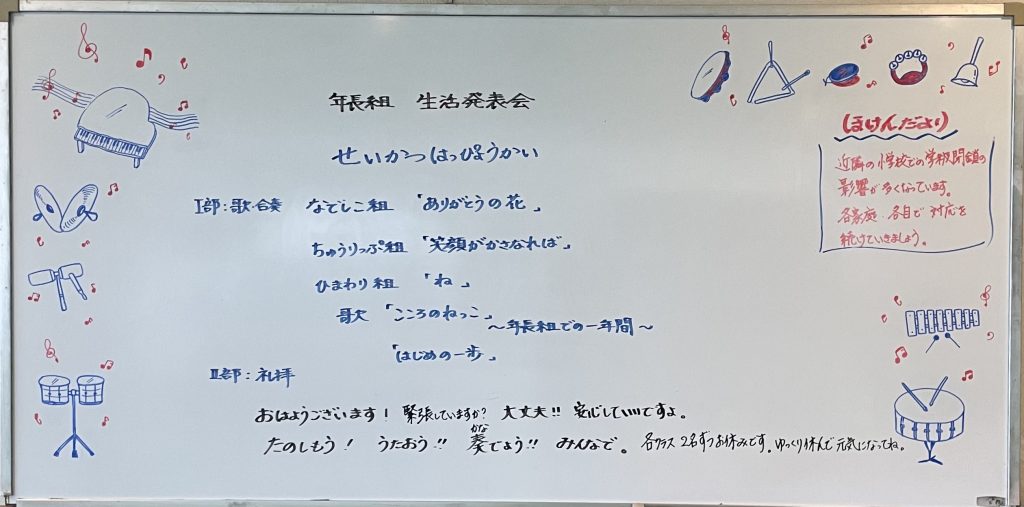 年長組 生活発表会
せいかつはっぴょうかい
Ⅰ部：歌・合奏 なでしこ組 「ありがとうの花」
ちゅうりっぷ組 「笑顔がかさなれば」
ひまわり組 「ね」
歌 「こころのねっこ」
～年長組での一年間～
「はじめの一歩」
Ⅱ部：礼拝
おはようございます！ 緊張していますか？ 大丈夫!! 安心していいですよ。
たのしもう！ うたおう!! 奏でよう!! みんなで。 各クラス2名ずつお休みです。ゆっくり休んで元気になってね。
かな
ほけんだより
近隣の小学校での学校閉鎖の
影響が多くなっています。
各家庭、各自で対応を
続けていきましょう。